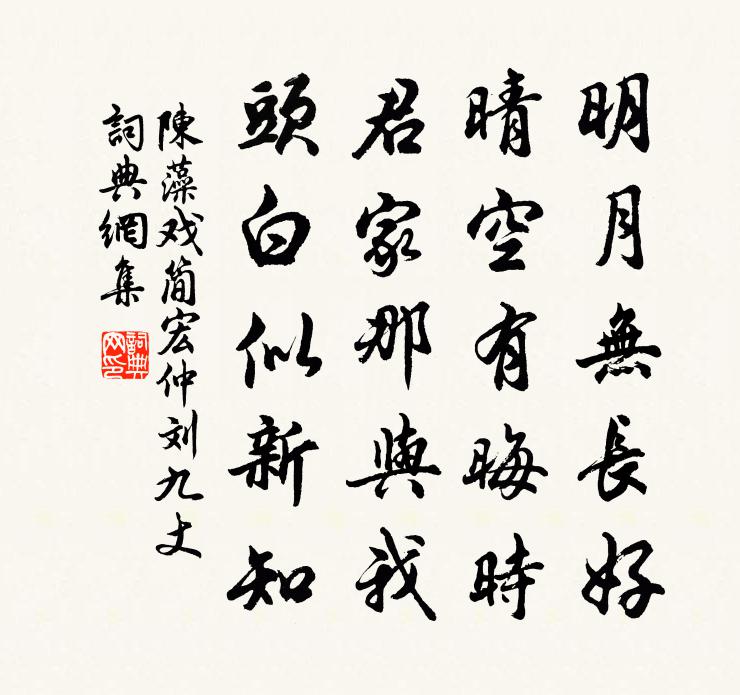 明月無長好
晴空有晦時
君家那與我
頭白似新知
陳藻戏简宏仲刘九丈
詞典網集
詞典
网印